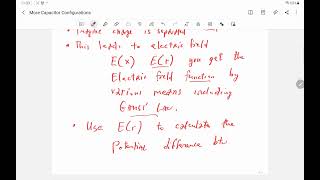 More Capacitor Configurations
• Imagine charge is separated
• This leads to electric field
E(x) E(r) you get the
Electric field function by
various means including
Gauss' Law.
• Use E(r) to calculate the
Potential difference btw